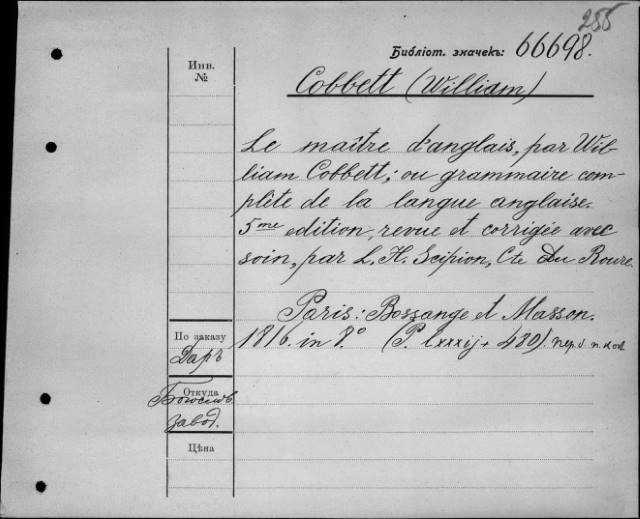 255
Библіот. значекъ: 66698.
Инв.
№
Cobbett (William)
Le maître d'anglais, par Wil-
liam Cobbett; ou grammaire com-
plète de la langue anglaise.
5me edition, revue et corrigée avec
soin, par L. H. Scipion, Cte du Roure.
Paris: Bossange et Masson.
1816. in 8.° (P. lxxxij + 480).
По заказу
Даръ
Откуда
Богослов.
завод.
Цѣна